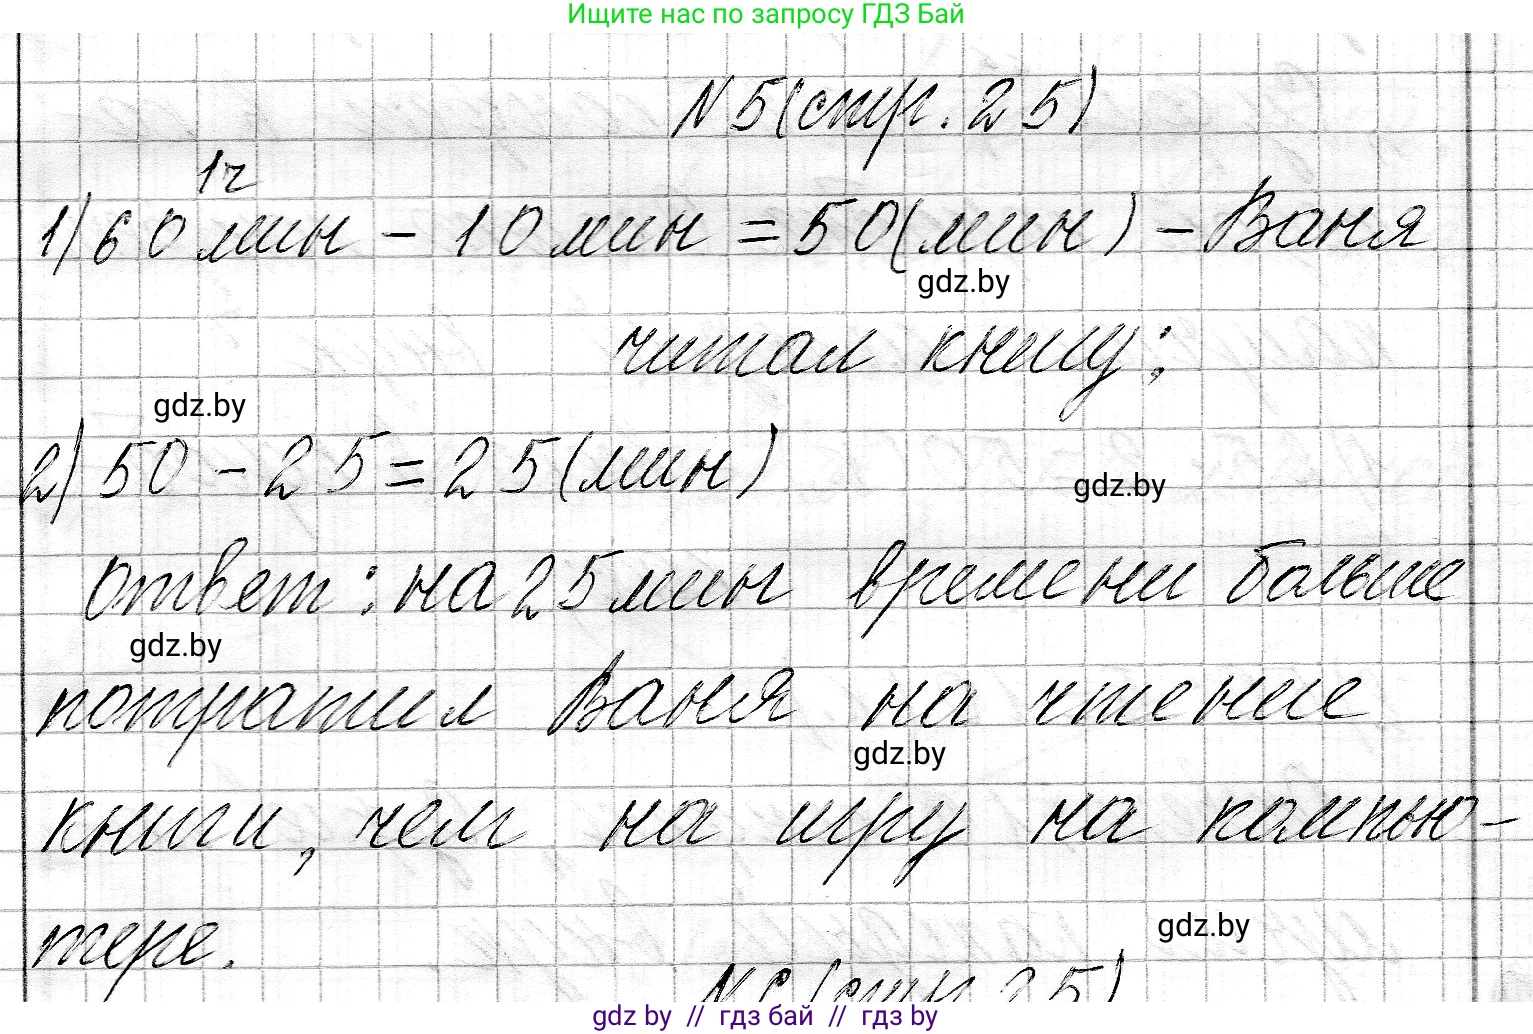 Ищите нас по запросу ГДЗ Бай
N 5(стр. 25)
1ч
1) 60 мин - 10 мин = 50(мин) - Ваня
gdz.by
читал книгу;
gdz.by
2) 50 - 25 = 25(мин)
gdz.by
ответ: на 25 мин времени больше
gdz.by
потратил Ваня на чтение
gdz.by
книги, чем на игру на компью-
gdz.by
тере.
(стр. 25)
gdz by // гдз бай // гдз by